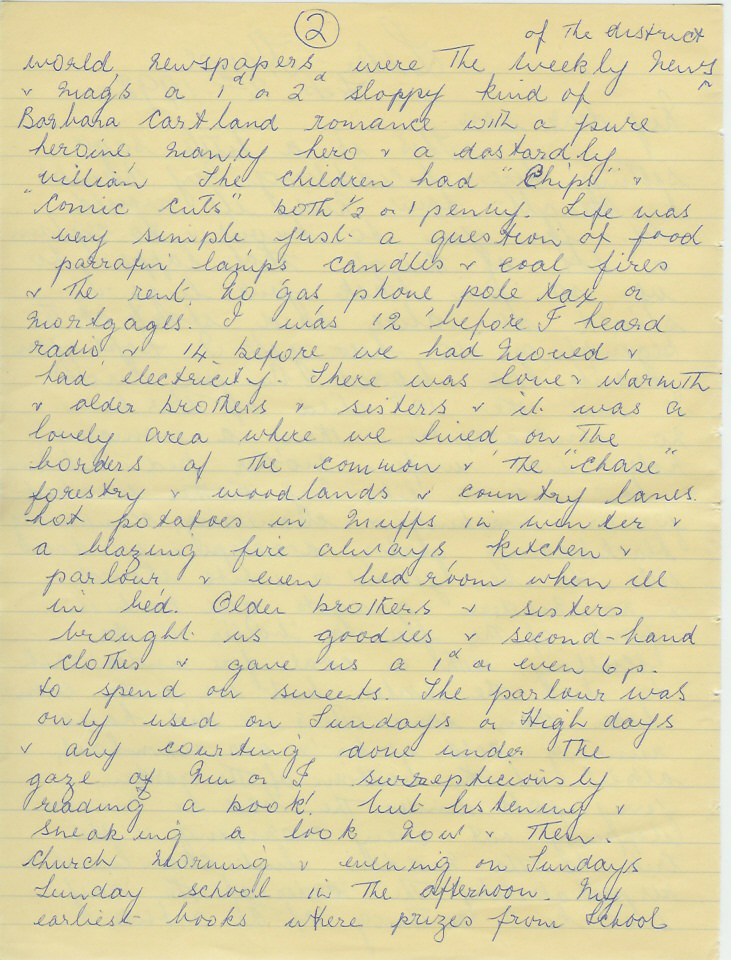 2
of the district
world, newspapers, were the weekly news
& mags a 1d or 2d sloppy kind of
Barbara Cartland romance with a pure
heroine manly hero & a dastardly
villian The children had "Chips" &
"Comic Cuts" both 1/2 or 1 penny. Life was
very simple just a question of food
parrafin lamps candles & coal fires
& the rent, no gas phone pole tax or
mortgages. I was 12 before I heard
radio & 14 before we had moved &
had electricity. There was love & warmth
& older brothers & sisters & it was a
lovely area where we lived on the
borders of the common & the "chase"
forestry & woodlands & country lanes.
hot potatoes in muffs in winter &
a blazing fire always kitchen &
parlour & even bedroom when ill
in bed. Older brothers & sisters
brought us goodies & second-hand
clothes & gave us a 1d or even 6p.
to spend on sweets. The parlour was
only used on Sundays or High days
& any courting done under the
gaze of or I surrepticiously
reading a book! but listening &
sneaking a look now & then.
Church morning & evening on Sundays
Sunday school in the afternoon. My
earliest books where prizes from school